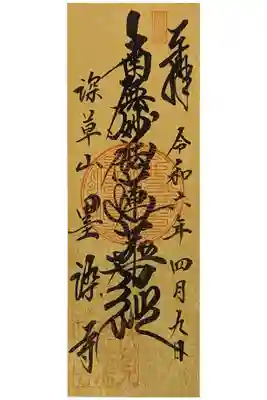 奉拝
令和六年四月九日
南無妙法蓮華経
深草山墨染寺